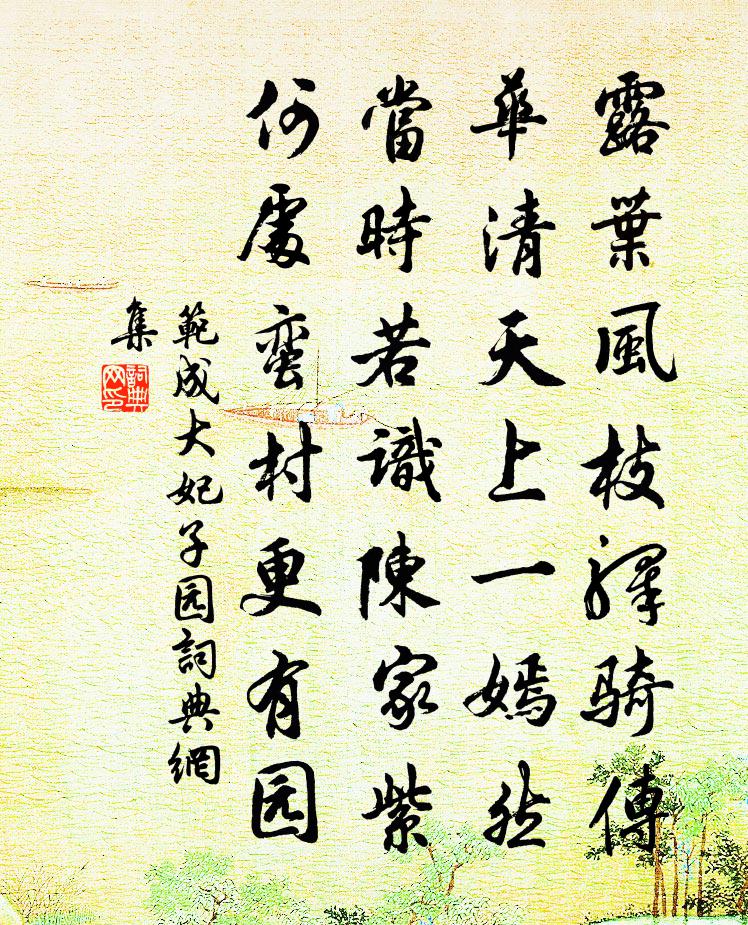 露葉風枝驛騎傳
華清天上一嫣然
當時若識陳家紫
何處蛮村更有园
範成大妃子园詞典網
集
詞典
网印